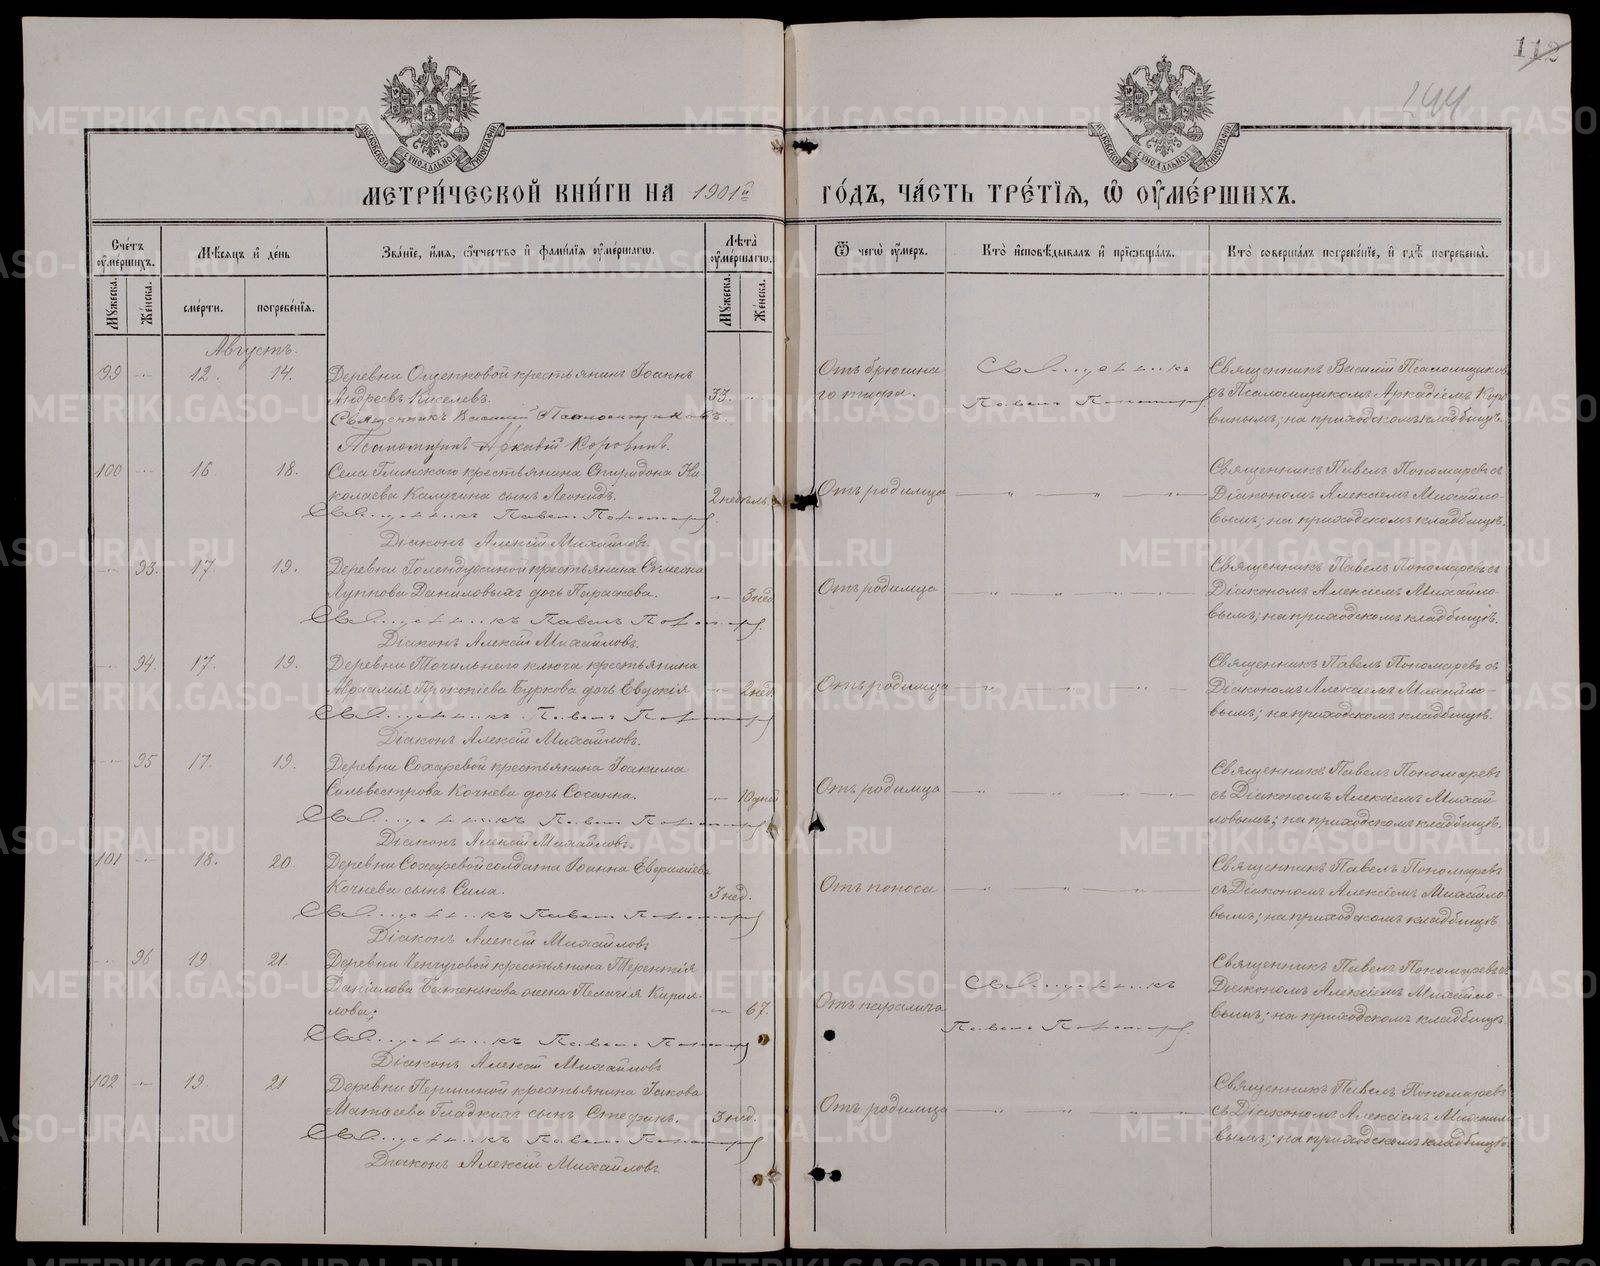 112
144
МОСКОВСКОЙ СѴНОДАЛЬНОЙ ТИПОГРАФІИ
МОСКОВСКОЙ СѴНОДАЛЬНОЙ ТИПОГРАФІИ
МЕТРИ́ЧЕСКОЙ КНИ́ГИ НА 1901й ГО́ДЪ, ЧА́СТЬ ТРЕ́ТІѦ, Ѡ҆ ОУ҆МЕ́РШИХЪ.
Сче́тъ оу҆ме́ршихъ.
Мѣ́сѧцъ и҆ де́нь
Зва́нїе, и҆́мѧ, ѻ҆́тчество и҆ фами́лїѧ оу҆ме́ршагѡ.
Лѣта̀ оу҆ме́ршагѡ.
Ѿ чегѡ̀ оу҆́меръ.
Кто̀ и҆сповѣ́дывалъ и҆ прїѡбща́лъ.
Кто̀ соверша́лъ погребе́нїе, и҆ гдѣ̀ погребены̀.
Мꙋ́жеска.
Же́нска.
сме́рти.
погребе́нїѧ.
Мꙋ́жеска.
Же́нска.
Августъ.
99 12. 14. Деревни Ощепковой крестьянинъ Іоаннъ
Андреевъ Киселевъ. 33.
Священникъ Василій Псаломщиковъ
Псаломщикъ Аркадій Коровинъ.
Отъ брюшна
го тифа.
Священникъ
Павелъ Пономаревъ
Священникъ Василій Псаломщиковъ
съ Псаломщикомъ Аркадіемъ Коро
винымъ; на приходскомъ кладбищѣ.
100 16. 18. Села Глинскаго крестьянина Спиридона Ни-
колаева Калугина сынъ Леонидъ. 2 недѣль.
Священникъ Павелъ Пономаревъ
Діаконъ Алексій Михайловъ.
Отъ родимца
Священникъ Павелъ Пономаревъ съ
Діакономъ Алексіемъ Михайло-
вымъ; на приходскомъ кладбищѣ.
93. 17 19. Деревни Голендухиной крестьянина Сѵмеона
Луппова Даниловыхъ дочь Параскева. 3 нед.
Священникъ Павелъ Пономаревъ
Діаконъ Алексій Михайловъ.
Отъ родимца
Священникъ Павелъ Пономаревъ съ
Діакономъ Алексіемъ Михайло-
вымъ; на приходскомъ кладбищѣ.
94. 17. 19. Деревни Точильнаго ключа крестьянина
Авраамія Прокопіева Буркова дочь Евдокія 2 нед.
Священникъ Павелъ Пономаревъ
Діаконъ Алексій Михайловъ.
Отъ родимца
Священникъ Павелъ Пономаревъ съ
Діакономъ Алексіемъ Михайло-
вымъ; на приходскомъ кладбищѣ.
95 17. 19. Деревни Сохаревой крестьянина Іоакима
Сильвестрова Кочнева дочь Сосанна. 10 дней
Священникъ Павелъ Пономаревъ
Діаконъ Алексій Михайловъ.
Отъ родимца
Священникъ Павелъ Пономаревъ
съ Діакономъ Алексіемъ Михай
ловымъ; на приходскомъ кладбищѣ.
101 18. 20. Деревни Сохаревой солдата Іоанна Евфиміева
Кочнева сынъ Сила. 3 нед.
Священникъ Павелъ Пономаревъ
Діаконъ Алексій Михайловъ
Отъ поноса
Священникъ Павелъ Пономаревъ
съ Діакономъ Алексіемъ Михайло-
вымъ; на приходскомъ кладбищѣ.
96 19. 21. Деревни Ченчуговой крестьянина Терентія
Даніилова жена Пелагія Кирил-
лова; 67.
Священникъ Павелъ Пономаревъ
Діаконъ Алексій Михайловъ
Отъ паралича
Священникъ
Павелъ Пономаревъ
Священникъ Павелъ Пономаревъ съ
Діакономъ Алексіемъ Михайло-
вымъ; на приходскомъ кладбищѣ.
102 19. 21 Деревни Першиной крестьянина Іакова
Матѳеева Гладкихъ сынъ Стефанъ. 3 нед.
Священникъ Павелъ Пономаревъ
Діаконъ Алексій Михайловъ
Отъ родимца
Священникъ Павелъ Пономаревъ
съ Діакономъ Алексіемъ Михайло
вымъ; на приходскомъ кладбищѣ
METRIKI.GASO-URAL.RU